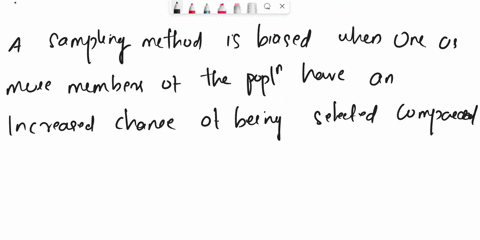 A sampling method is biased when one or
more members of the poplⁿ have an
Increased chance of being selected compared